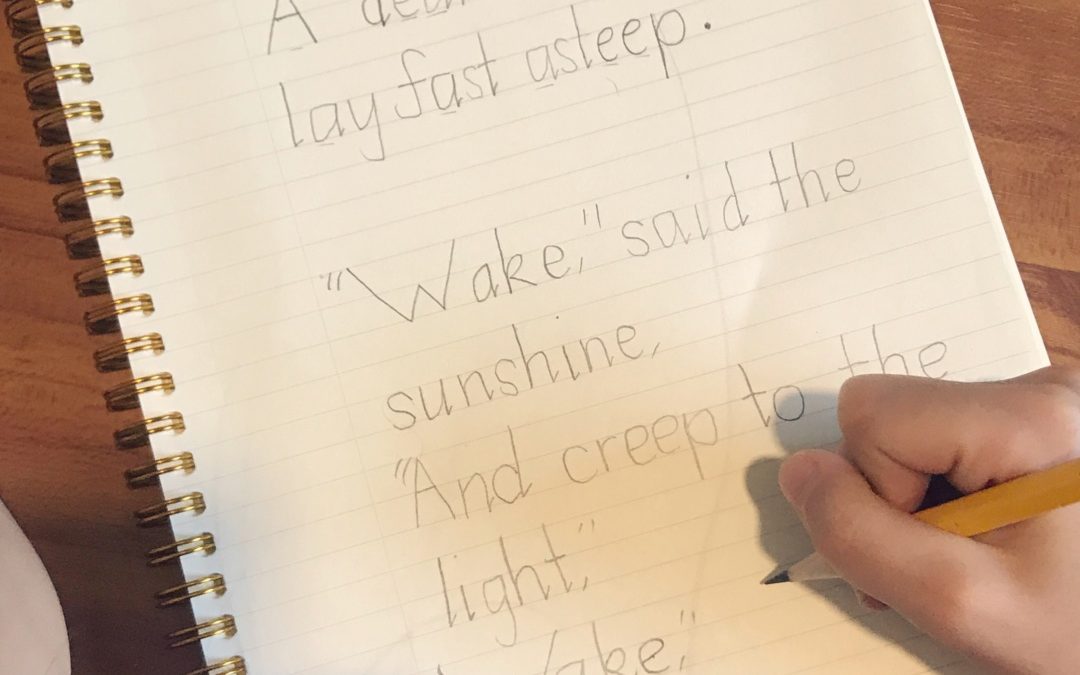 A
lay fast asleep.
"Wake," said the
sunshine,
"And creep to the
light,"
Wake,"